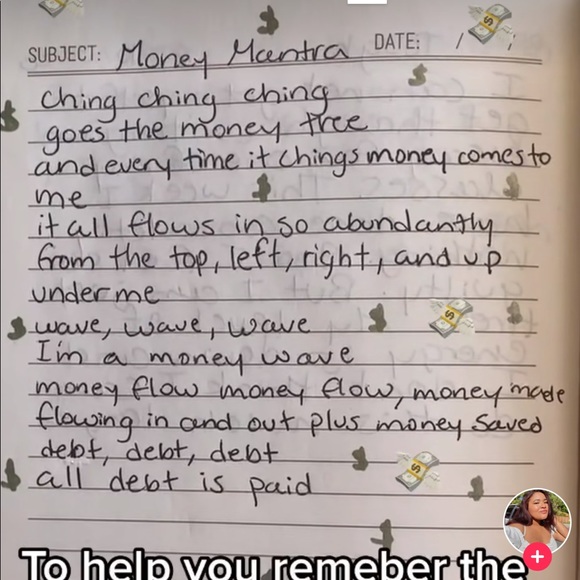 SUBJECT: Money Mantra DATE: / /
Ching ching ching
goes the money tree
and every time it chings money comes to
me
it all flows in so abundantly
from the top, left, right, and up
under me
wave, wave, wave
I'm a money wave
money flow money flow, money made
flowing in and out plus money saved
debt, debt, debt
all debt is paid
To help you remeber the